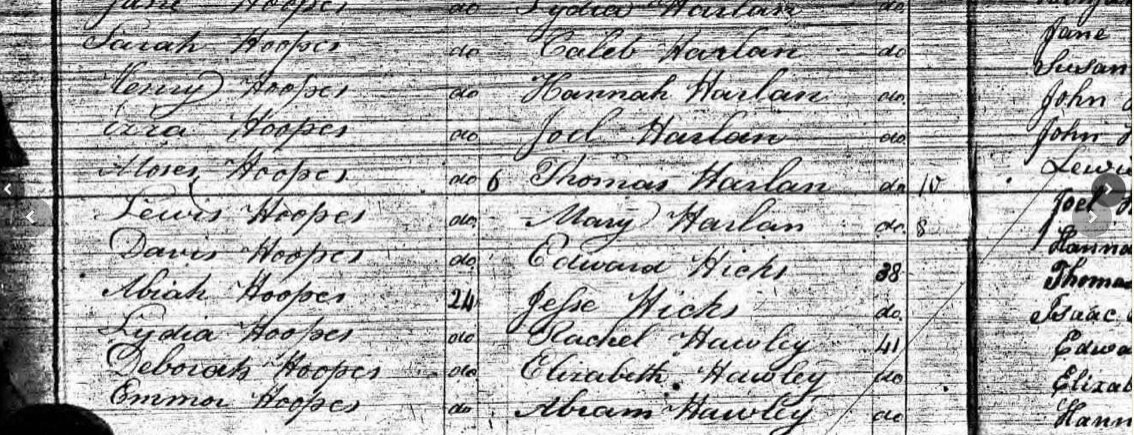 Jane Hoopes do Lydia Harlan do
Sarah Hoopes do Caleb Harlan do Jane
Henry Hoopes do Hannah Harlan do Susan
Ezra Hoopes do Joel Harlan do John
Moses Hoopes do 6 Thomas Harlan do 10 John
Lewis Hoopes do Mary Harlan do 8 Lewis
Davis Hoopes do Edward Hicks 38 Joel
Abiah Hoopes 24 Jesse Hicks do Hanna
Lydia Hoopes do Rachel Hawley 41 Thomas
Deborah Hoopes do Elizabeth Hawley do Isaac
Emmor Hoopes do Abram Hawley do Edwa
Elizab
Hann